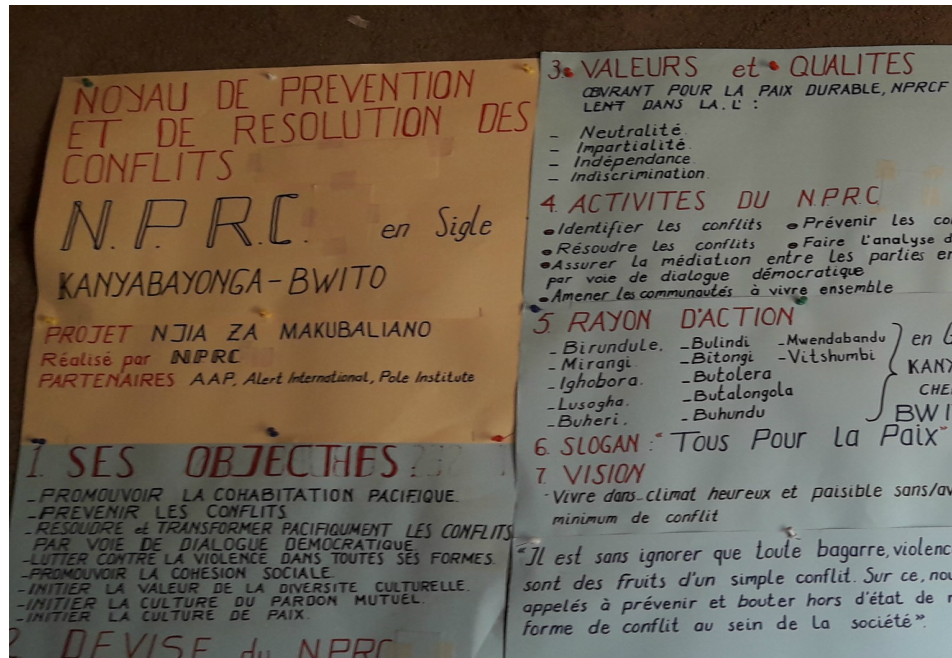 NOYAU DE PREVENTION
ET DE RESOLUTION DES
CONFLITS
N.P.R.C. en Sigle
KANYABAYONGA-BWITO
PROJET NJIA ZA MAKUBALIANO
Réalisé par NPRC
PARTENAIRES AAP, Alert International, Pole Institute
1. SES OBJECTIFS
-PROMOUVOIR LA COHABITATION PACIFIQUE.
-PREVENIR LES CONFLITS
-RESOUDRE et TRANSFORMER PACIFIQUMENT LES CONFLITS
PAR VOIE DE DIALOGUE DEMOCRATIQUE
-LUTTER CONTRE LA VIOLENCE DANS TOUTES SES FORMES.
-PROMOUVOIR LA COHESION SOCIALE.
-INITIER LA VALEUR DE LA DIVERSITE CULTURELLE.
-INITIER LA CULTURE DU PARDON MUTUEL.
-INITIER LA CULTURE DE PAIX.
2. DEVISE du NPRC
3. VALEURS et QUALITES
ŒUVRANT POUR LA PAIX DURABLE, NPRCF
LENT DANS LA. L' :
- Neutralité.
- Impartialité.
- Indépendance.
- Indiscrimination.
4. ACTIVITES DU N.P.R.C
• Identifier les conflits • Prévenir les
• Résoudre les conflits • Faire l'analyse
• Assurer la médiation entre les parties
par voie de dialogue démocratique
• Amener les communautés à vivre ensemble
5. RAYON D'ACTION
- Birundule. - Bulindi - Mwendabandu
- Mirangi. - Bitongi - Vitshumbi en
- Ighobora. - Butolera
- Lusogha. - Butalongola
- Buheri. - Buhundu BWI
6. SLOGAN : "Tous Pour la Paix"
7. VISION
-Vivre dans climat heureux et paisible sans/
minimum de conflit
"Il est sans ignorer que toute bagarre, violenc
sont des fruits d'un simple conflit. Sur ce, nou
appelés à prévenir et bouter hors d'état de
forme de conflit au sein de la société".